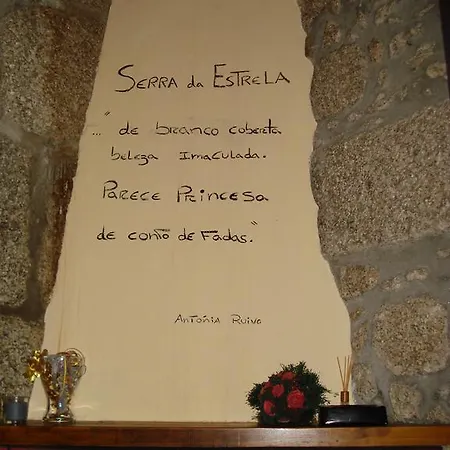 SERRA da ESTRELA
..." de branco coberta
beleza Imaculada.
PARECE PRINCESA
de conto de Fadas."
ANTÓNIA RUIVO